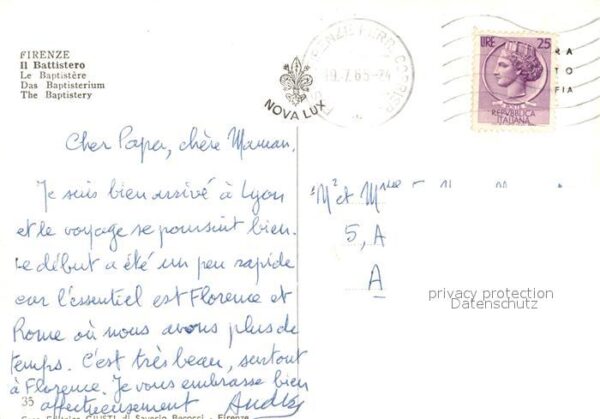 FIRENZE
Il Battistero
Le Baptistère
Das Baptisterium
The Baptistery
NOVA LUX
FIRENZE FERR.
19.7.65-24
LIRE 25
REPVBBLICA
ITALIANA
RA
TO
FIA
Cher Papa, chère Maman,
Je suis bien arrivé à Lyon
et le voyage se poursuit bien.
Le début a été un peu rapide
car l'essentiel est Florence et
Rome où nous avons plus de
temps. C'est très beau, surtout
à Florence. Je vous embrasse bien
affectueusement
Mr et Mme
5, A
A
privacy protection
Datenschutz
35
GIUSTI di Saverio Becocci - Firenze